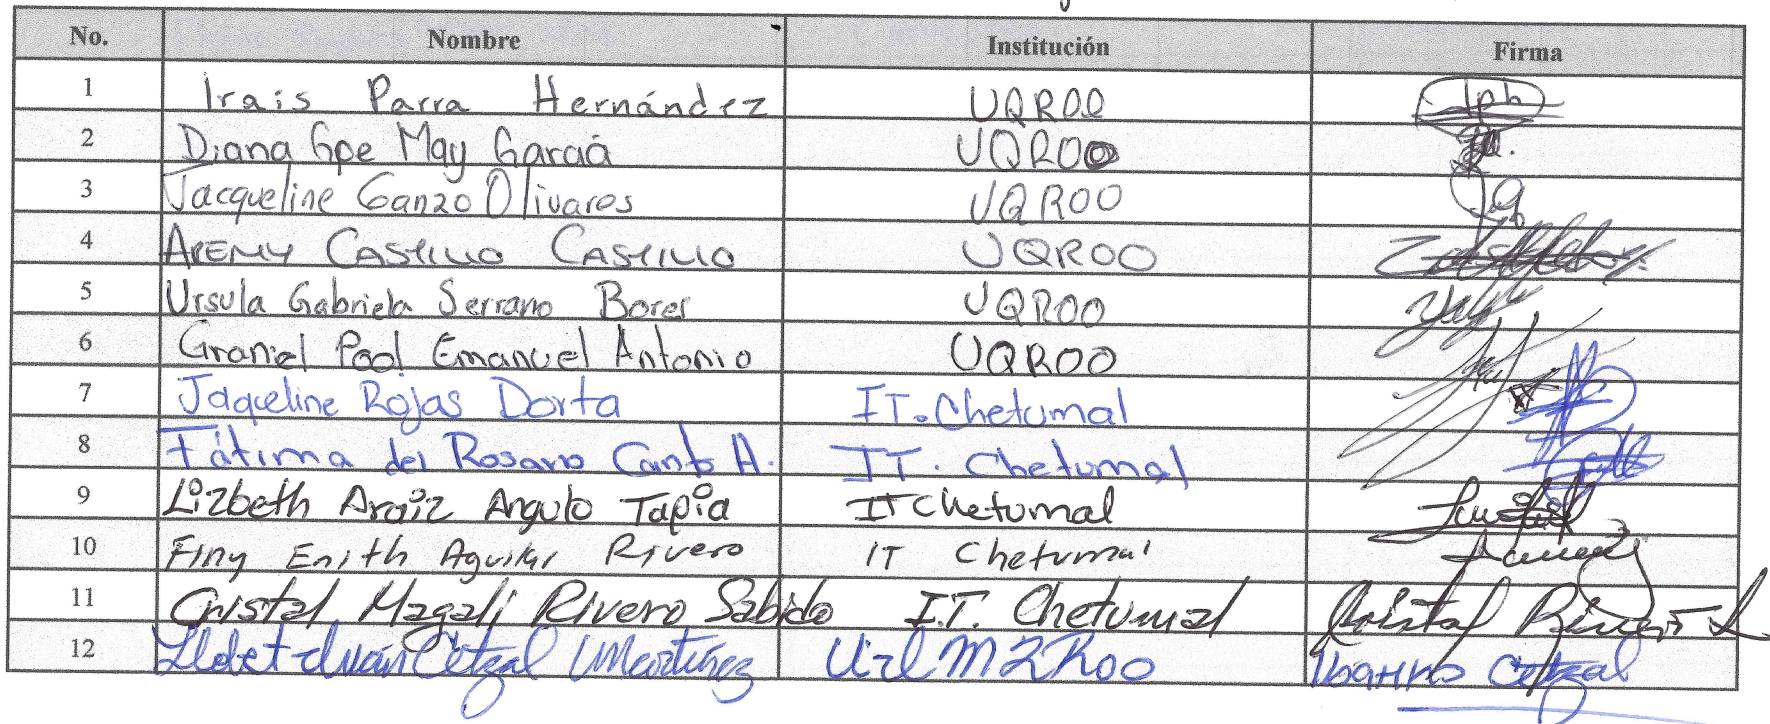 No. Nombre Institución Firma
1 Irais Parra Hernández UQROO Iph
2 Diana Gpe May García UQROO
3 Jacqueline Ganzo Olivares UQROO
4 Aremy Castillo Castillo UQROO
5 Ursula Gabriela Serrano Bores UQROO
6 Graniel Pool Emanuel Antonio UQROO
7 Jaqueline Rojas Dorta I.T. Chetumal
8 Fátima del Rosario Canto A. I.T. Chetumal
9 Lizbeth Araiz Angulo Tapia IT Chetumal
10 Finy Enith Aguilar Rivero IT Chetumal
11 Cristal Magali Rivero Sabido I.T. Chetumal Cristal Rivero S
12 Cetzal Martínez Cetzal